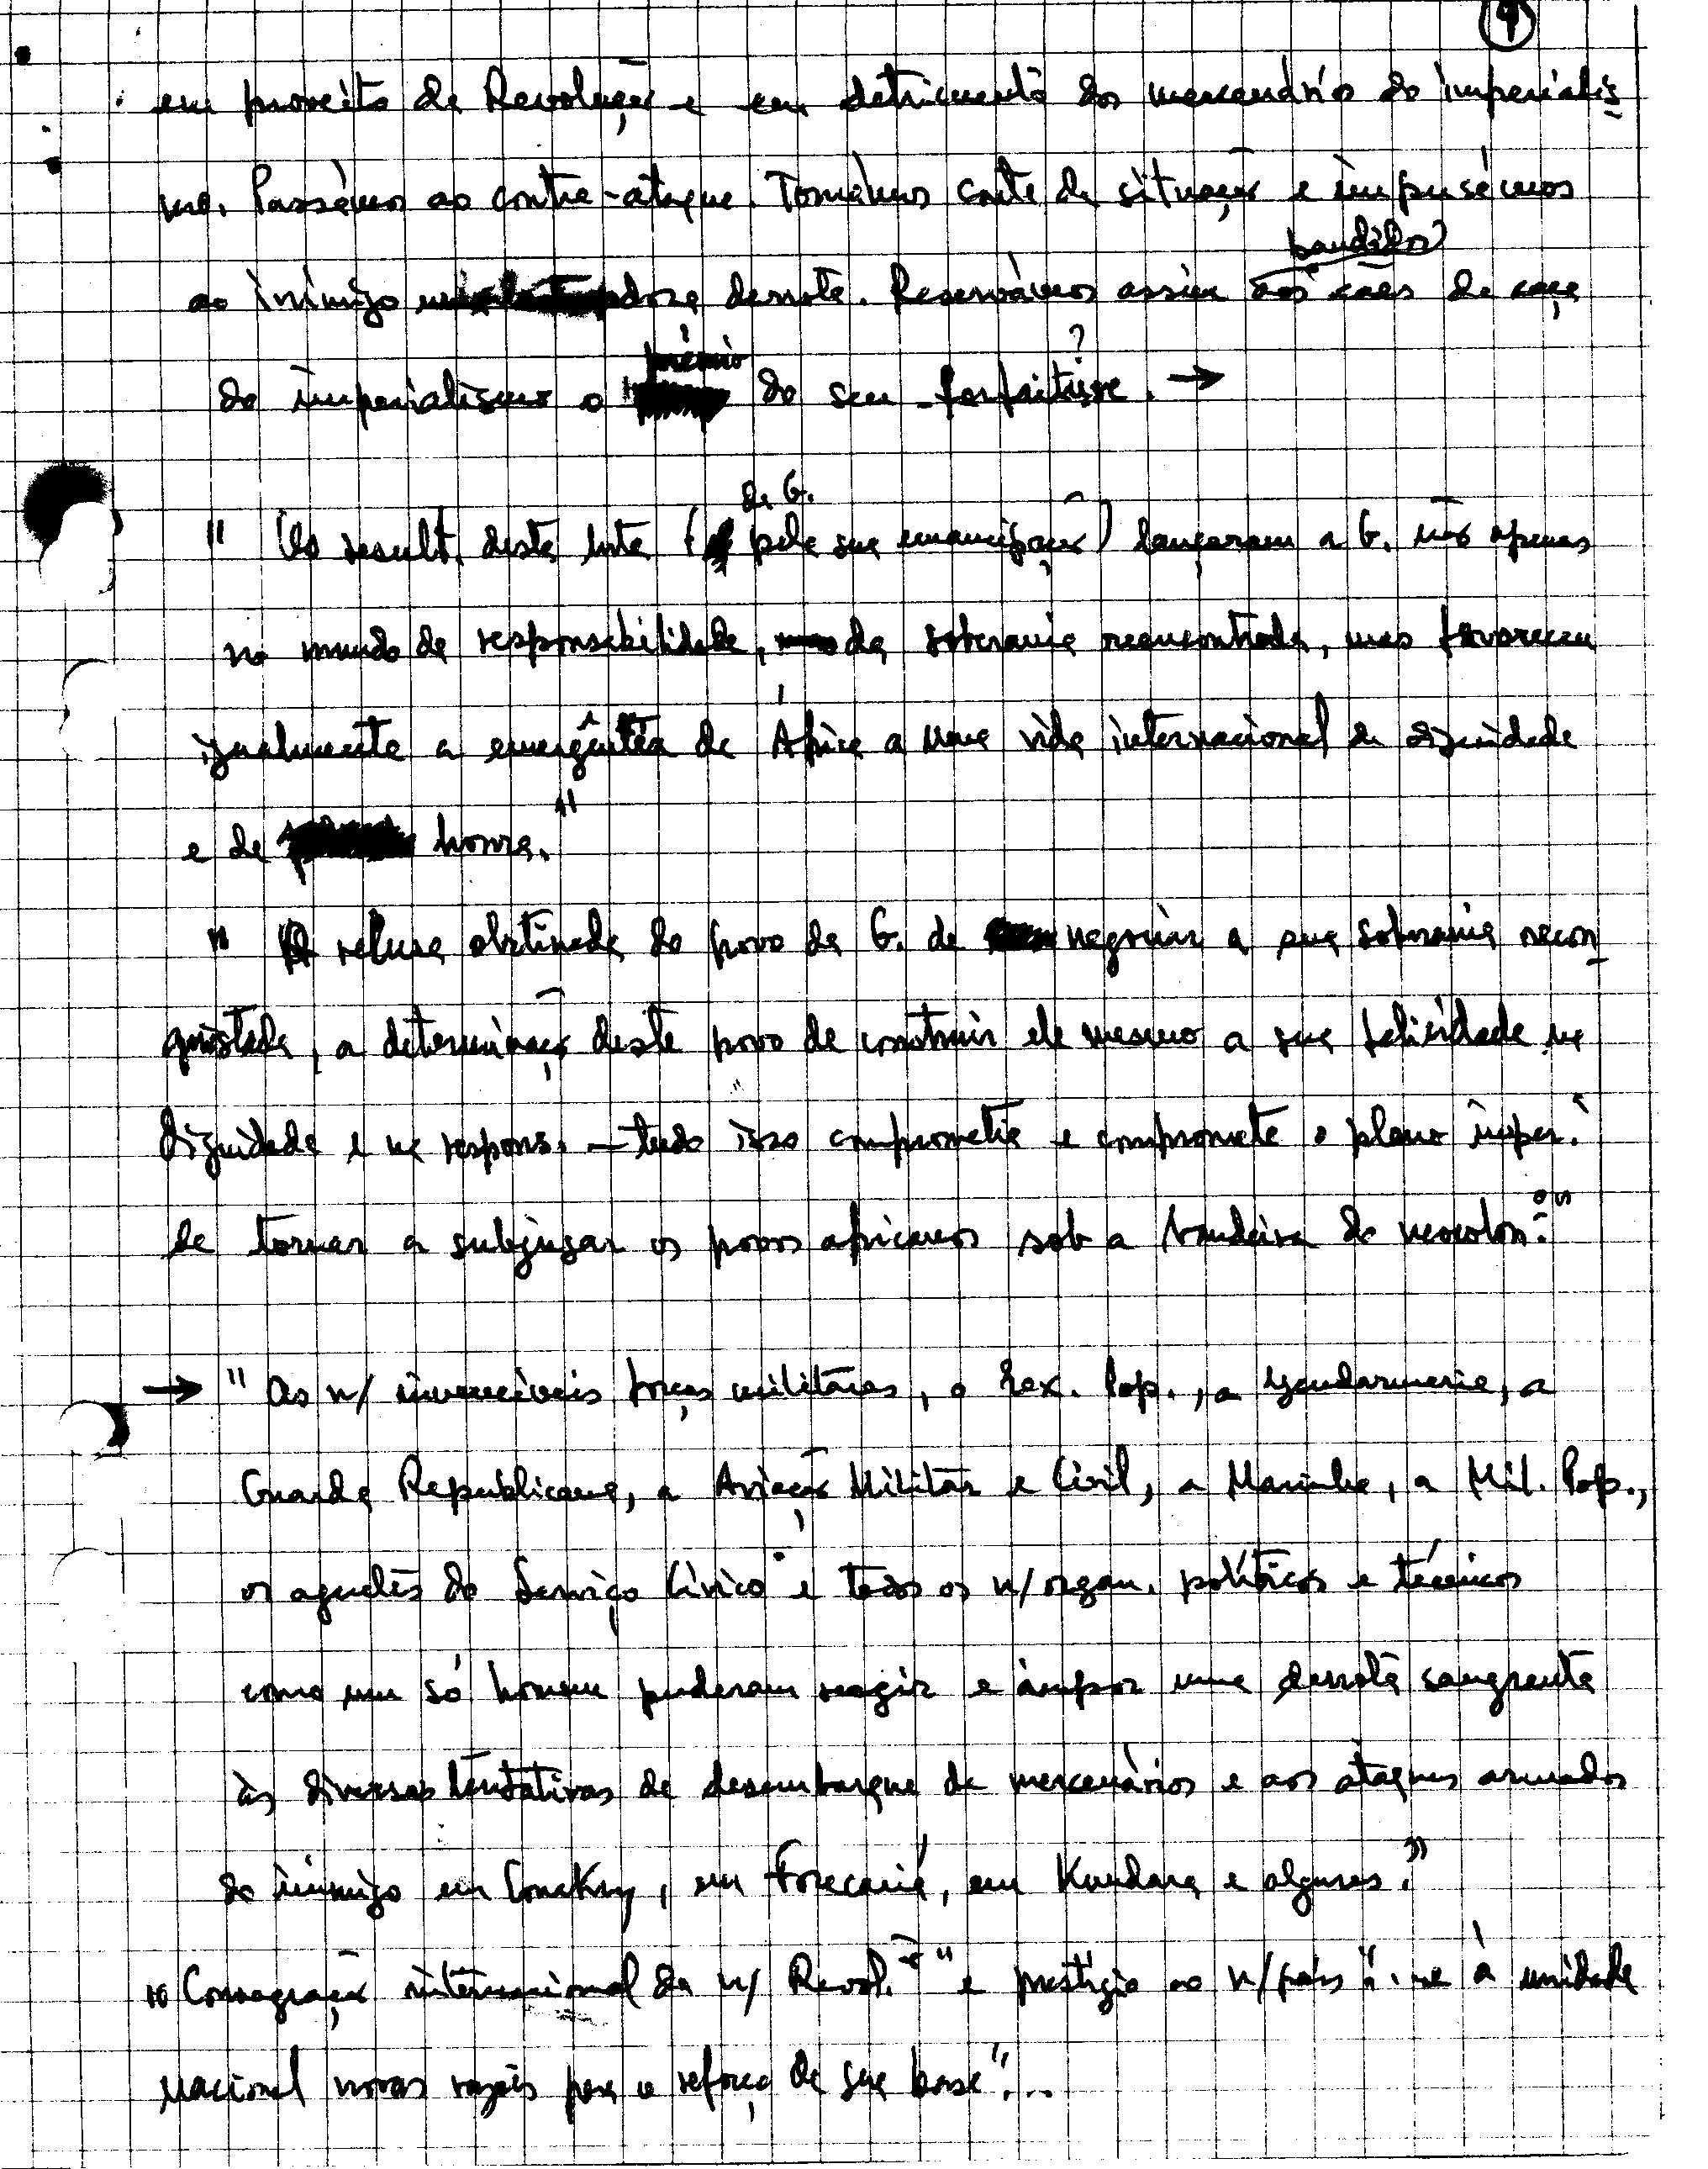 4
em proveito da Revolução e em detrimento dos mercenários do imperialis
mo. Passámos ao contra-ataque. Tomámos conta da situação e impusémos
bandidos
ao inimigo dora derrota. Reservámos assim aos cães de caça
prémio ?
do imperialismo o do seu forfaiture. →
da G.
" Os result. desta luta ( pela sua emancipação) lançaram a G. não apenas
no mundo da responsabilidade, da soberania reencontrada, mas favoreceu
igualmente a emergência da África a uma vida internacional de dignidade
e de honra."
" A recusa obstinada do povo da G. de negociar a sua soberania recon
quistada, a determinação deste povo de construir ele mesmo a sua felicidade na
dignidade e na respons. — tudo isso comprometia e compromete o plano imper.
de tornar a subjugar os povos africanos sob a bandeira do neocolon.º"
→ " As n/ invencíveis forças militares, o Exx. Pop., a Gendarmerie, a
Guarda Republicana, a Aviação Militar e Civil, a Marinha, a Mil. Pop.,
os agentes do Serviço Cívico e todos os n/ organ. políticos e técnicos
como um só homem puderam reagir e impor uma derrota sangrenta
às diversas tentativas de desembarque de mercenários e aos ataques armados
do inimigo em Conakry, em Forecariá, em Kundara e algures."
" Consagração internacional da n/ Revol.ção" e prestígio ao n/ país " à unidade
nacional novas razões para o reforço da sua base"...